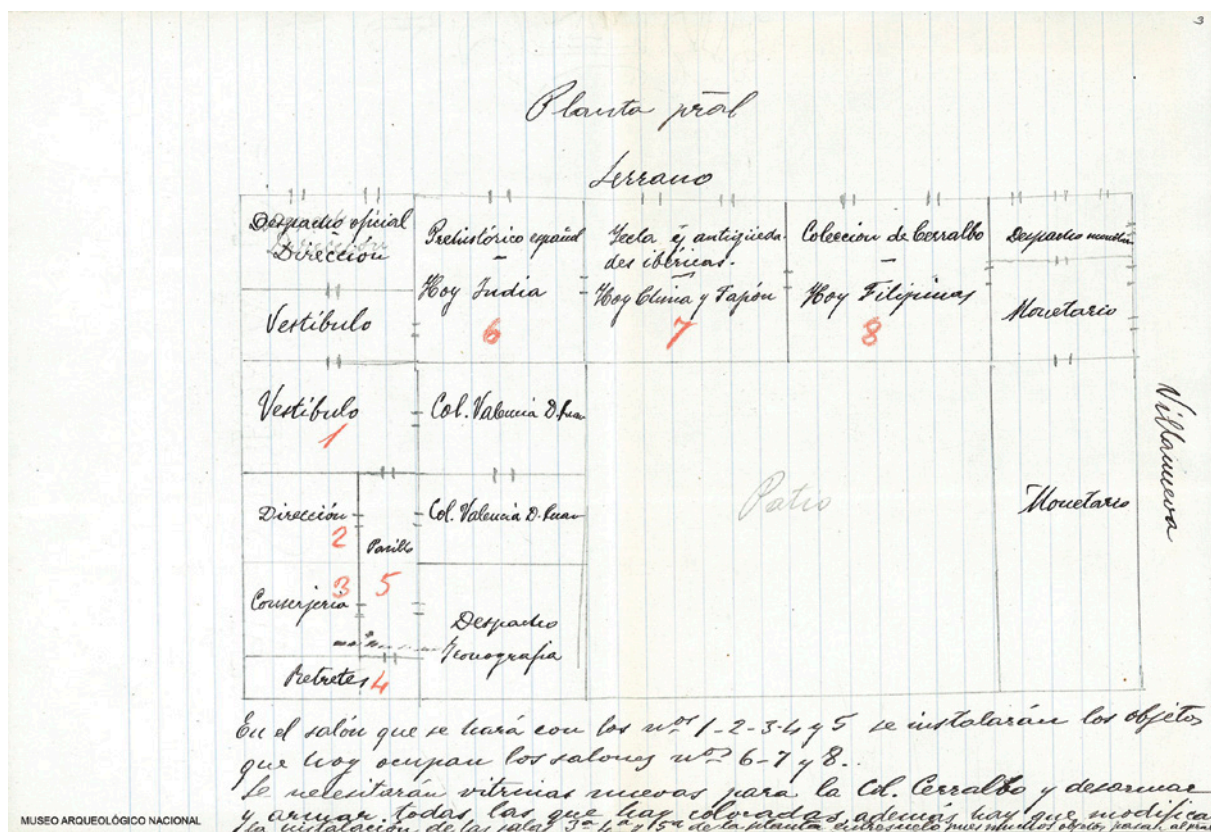 3
Planta pr̃al
Serrano
Despacho oficial
Dirección
Dirección
Prehistórico español
—
Hoy India
6
Yecla y antigüeda-
des ibéricas.
—
Hoy China y Japón
7
Coleccion de Cerralbo
—
Hoy Filipinas
8
Despacho
Monetario
Vestíbulo
Vestíbulo
1
Col. Valencia D. Juan
Patio
Monetario
Villanueva
Dirección
2
Pasillo
5
Col. Valencia D. Juan
Conserjeria
3
Despacho
Iconografia
Retretes
4
En el salón que se hará con los nos 1-2-3-4 y 5 se instalarán los objetos
que hoy ocupan los salones nos 6-7 y 8.
Se necesitarán vitrinas nuevas para la Col. Cerralbo y desarmar
y armar todas las que hay colocadas, además hay que modificar
la instalación de las salas 3ª 4ª y 5ª de la planta entresuelo pues
MUSEO ARQUEOLÓGICO NACIONAL